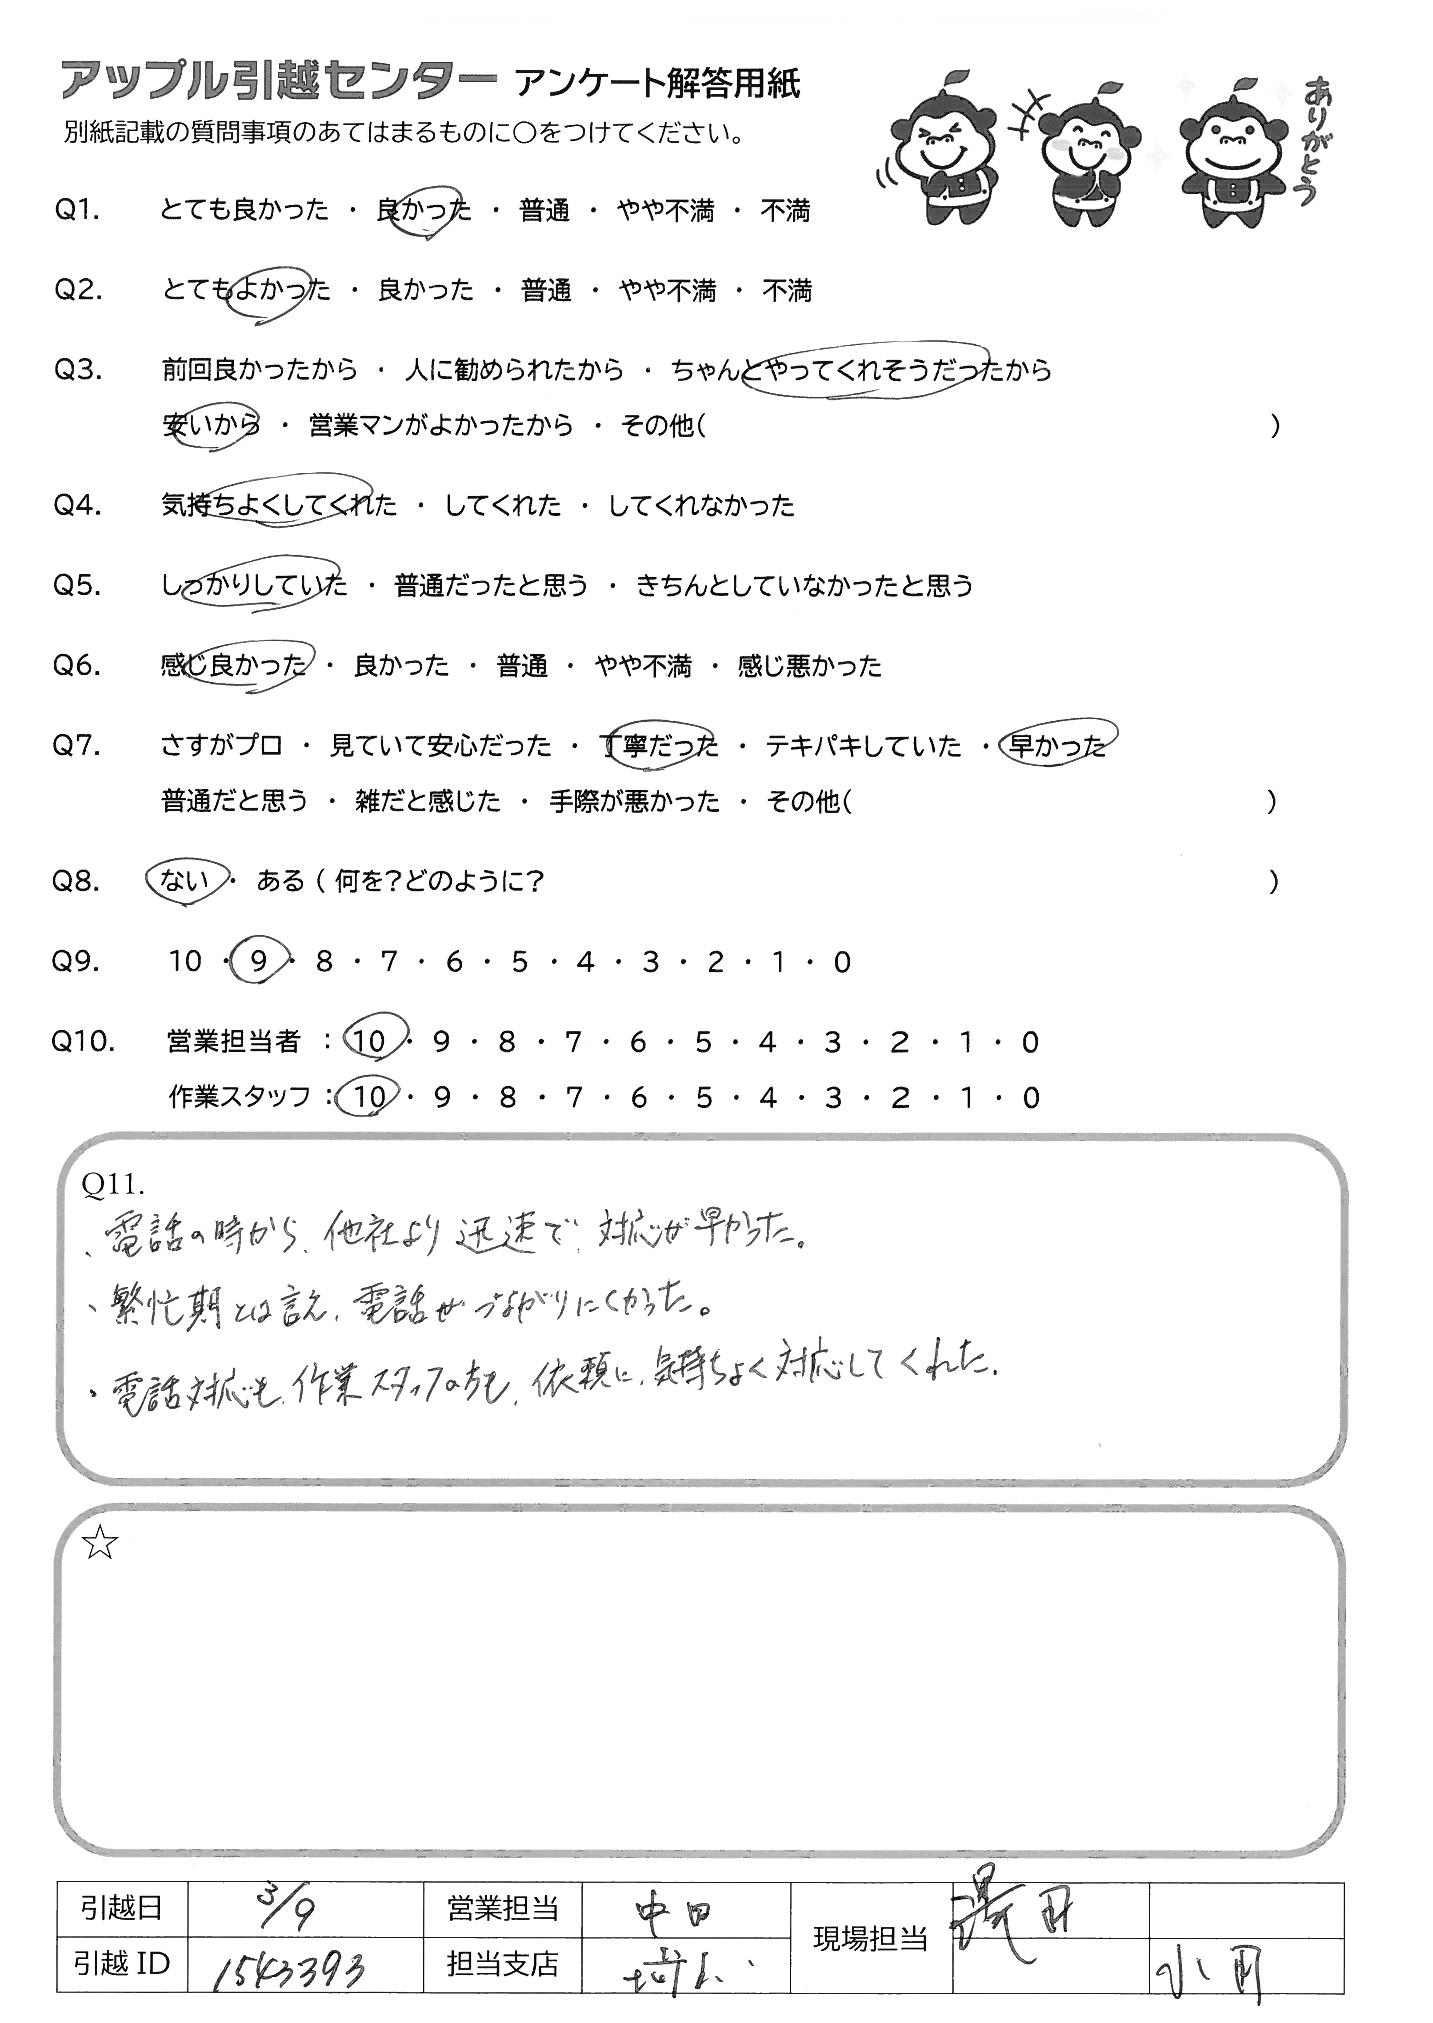 アップル引越センター アンケート解答用紙
ありがとう
別紙記載の質問事項のあてはまるものに○をつけてください。
Q1. とても良かった ・ 良かった ・ 普通 ・ やや不満 ・ 不満
Q2. とてもよかった ・ 良かった ・ 普通 ・ やや不満 ・ 不満
Q3. 前回良かったから ・ 人に勧められたから ・ ちゃんとやってくれそうだったから
安いから ・ 営業マンがよかったから ・ その他( )
Q4. 気持ちよくしてくれた ・ してくれた ・ してくれなかった
Q5. しっかりしていた ・ 普通だったと思う ・ きちんとしていなかったと思う
Q6. 感じ良かった ・ 良かった ・ 普通 ・ やや不満 ・ 感じ悪かった
Q7. さすがプロ ・ 見ていて安心だった ・ 丁寧だった ・ テキパキしていた ・ 早かった
普通だと思う ・ 雑だと感じた ・ 手際が悪かった ・ その他( )
Q8. ない ・ ある ( 何を?どのように? )
Q9. 10 ・ 9 ・ 8 ・ 7 ・ 6 ・ 5 ・ 4 ・ 3 ・ 2 ・ 1 ・ 0
Q10. 営業担当者 : 10 ・ 9 ・ 8 ・ 7 ・ 6 ・ 5 ・ 4 ・ 3 ・ 2 ・ 1 ・ 0
作業スタッフ : 10 ・ 9 ・ 8 ・ 7 ・ 6 ・ 5 ・ 4 ・ 3 ・ 2 ・ 1 ・ 0
Q11.
、電話の時から、他社より迅速で、対応が早かった。
、繁忙期とは言え、電話がつながりにくかった。
、電話対応も、作業スタッフの方も、依頼に、気持ちよく対応してくれた.
☆
引越日 3/9 営業担当 中田 現場担当
引越 ID 1543393 担当支店 小田